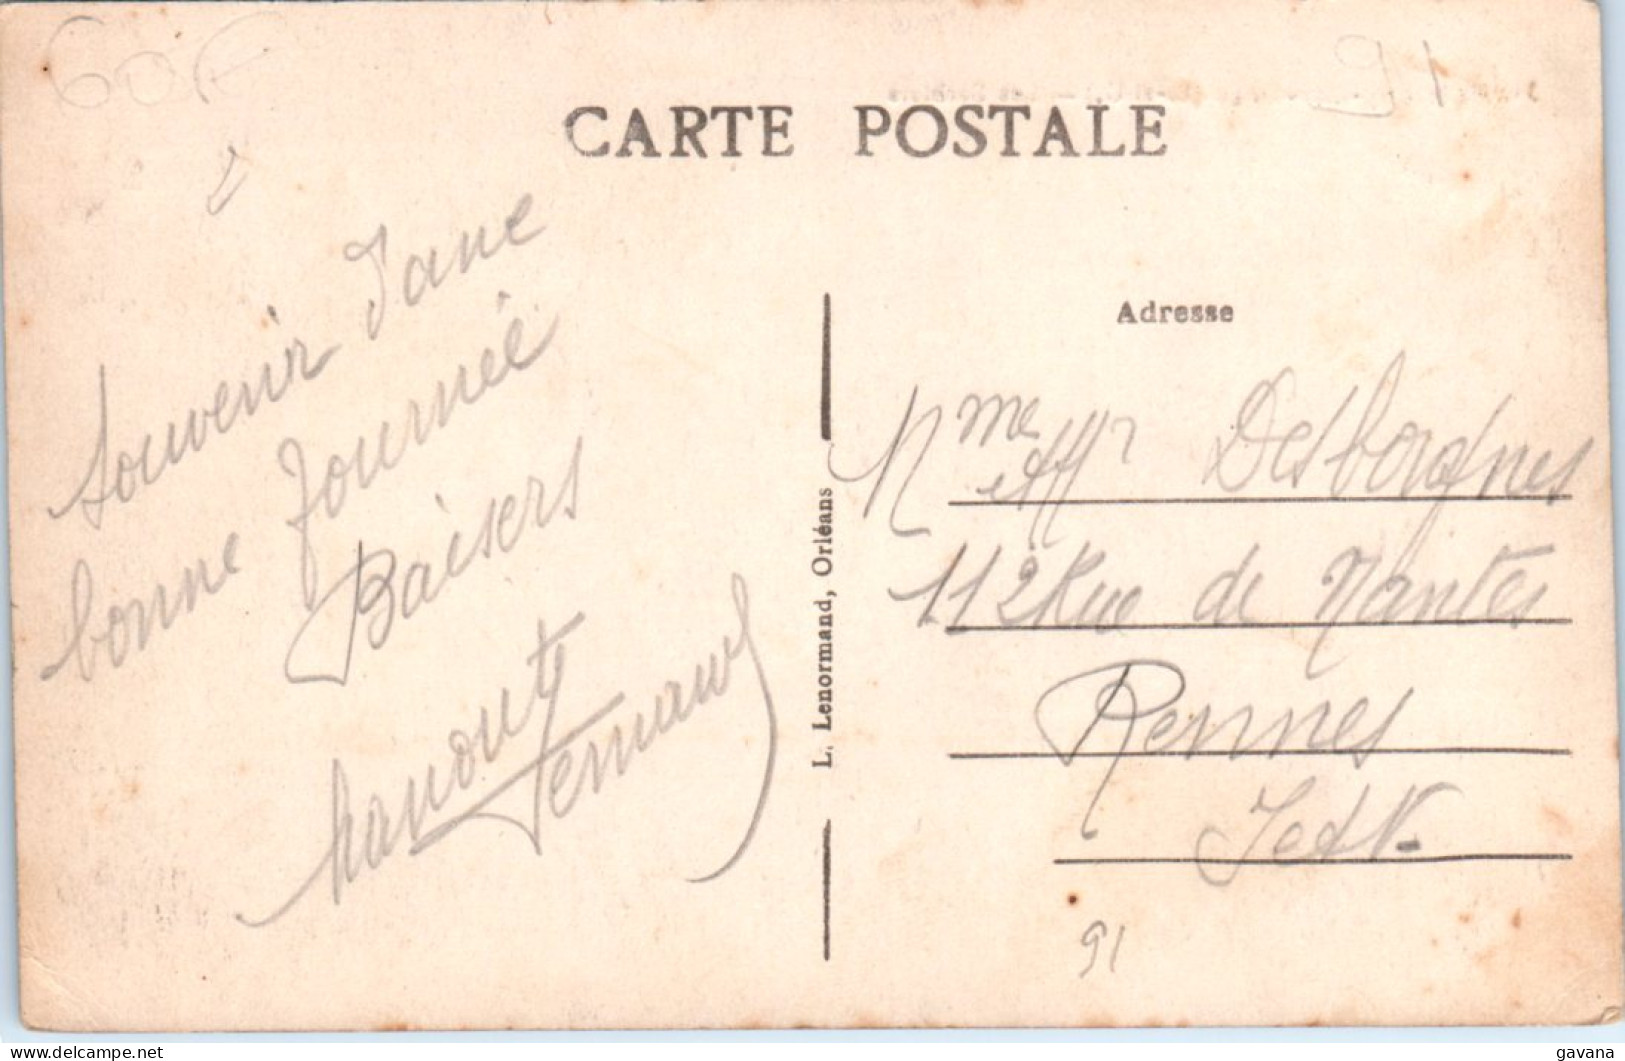 60F
91
CARTE POSTALE
Souvenir d'une
bonne Journée
Baisers
Fernand
L. Lenormand, Orléans
Adresse
Mme et Mr Desborgnes
112 Rue de Nantes
Rennes
I et V-
91
delcampe.net
gavana